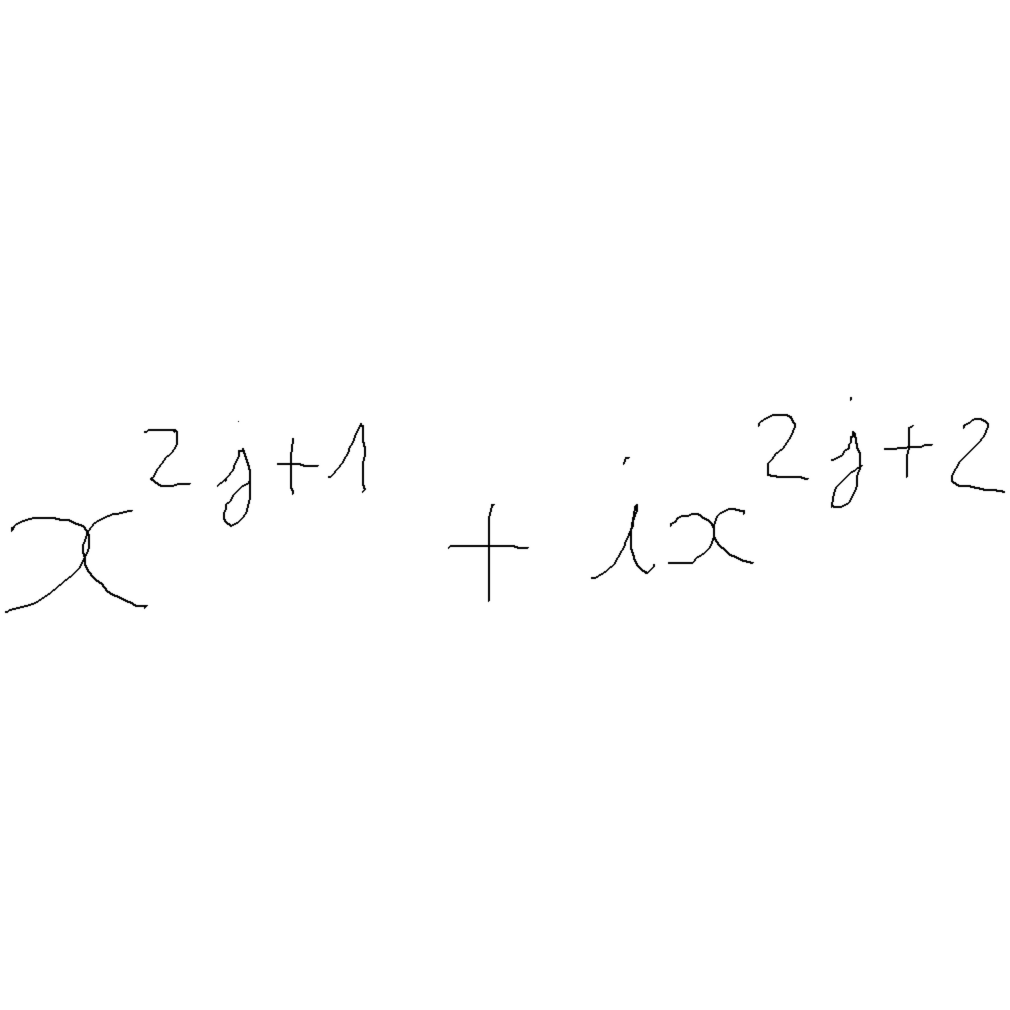 x^{2j+1} + ix^{2j+2}